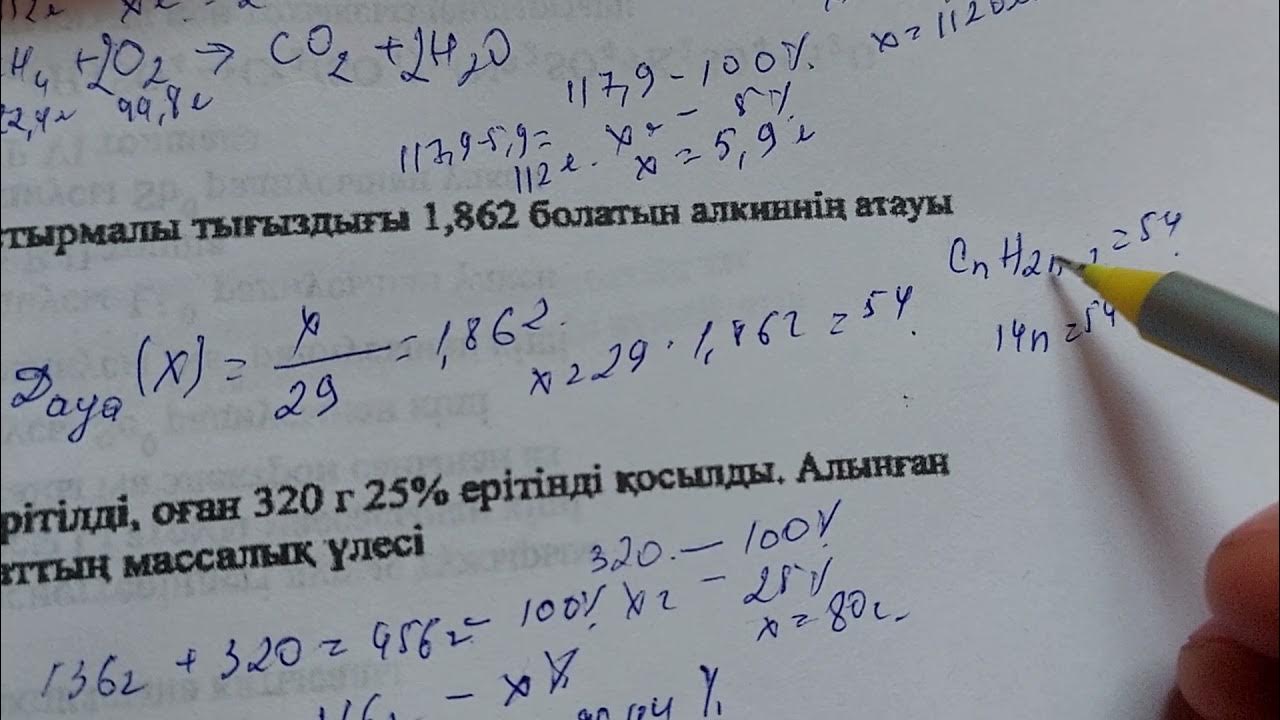 H₄ + 2O₂ → CO₂ + 2H₂O
99,8 л
x = 1120
117,9 – 100%
x – 5%
117,9-5,9=
112 л.
x = 5,9 л
тырмалы тығыздығы 1,862 болатын алкиннің атауы
CnH2n-2 = 54
Dауа (X) = x/29 = 1,862.
x = 29 · 1,862 = 54
14n = 54
рітілді, оған 320 г 25% ерітінді қосылды. Алынған
аттың массалық үлесі
320 – 100%
x г – 25%
x = 80 г
136г + 320 = 456г – 100%
116г – x %